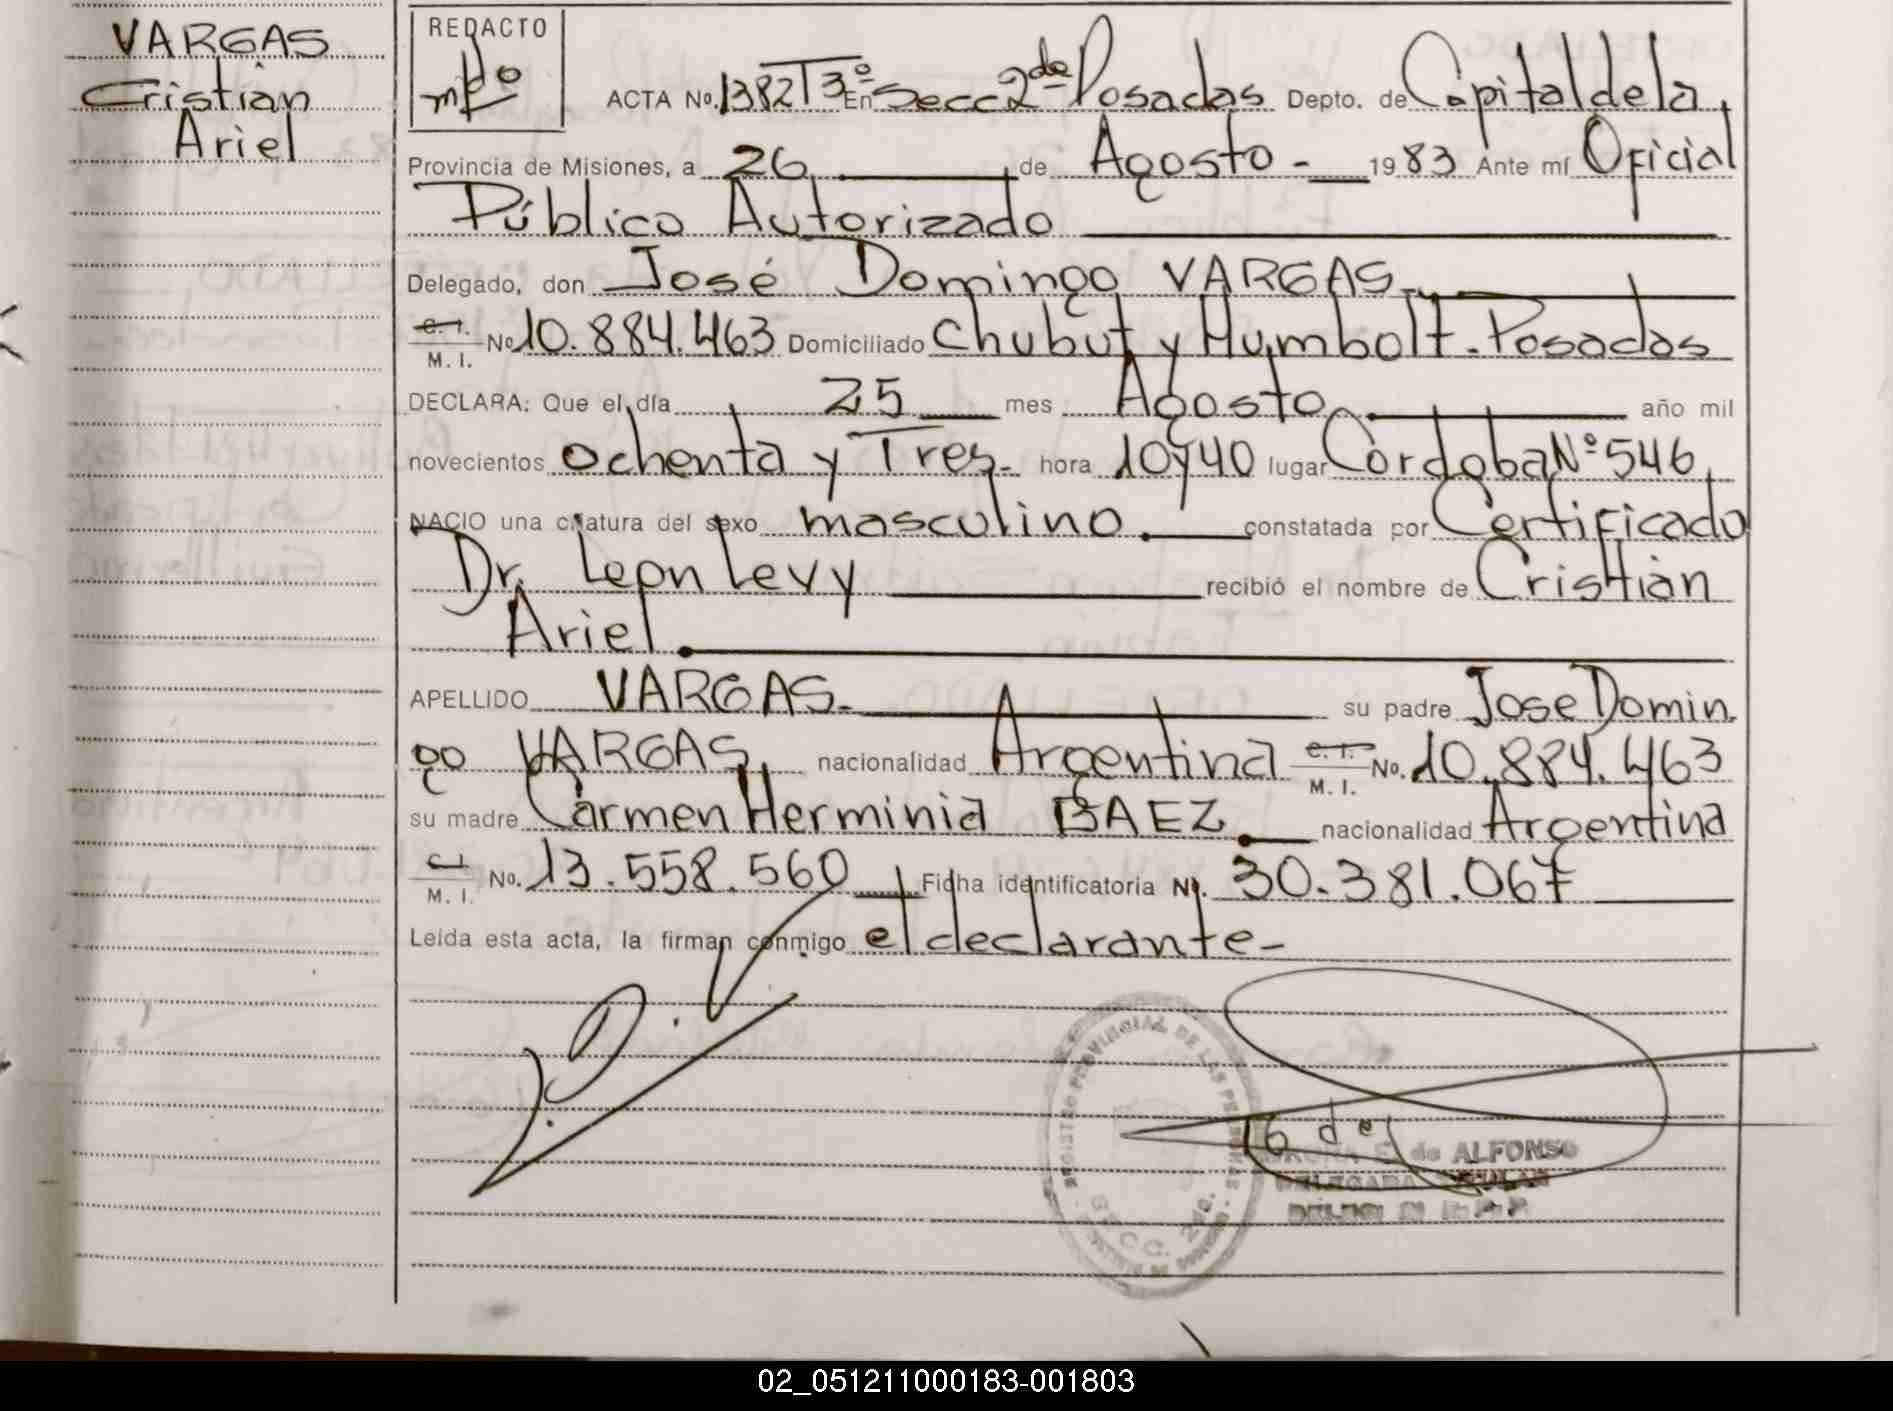 VARGAS
Cristian
Ariel
REDACTO
ACTA No. 1382 T 3º En Secc 2da Posadas Depto. de Capital de la
Provincia de Misiones, a 26 de Agosto - 1983 Ante mí Oficial
Público Autorizado
Delegado, don José Domingo VARGAS.
C. I. M. I. No 10.884.463 Domiciliado Chubut y Humbolt. Posadas
DECLARA: Que el día 25 mes Agosto año mil
novecientos ochenta y Tres. hora 10y40 lugar Córdoba Nº 546
NACIO una criatura del sexo masculino. constatada por Certificado
Dr. Leon Levy recibió el nombre de Cristian
Ariel.
APELLIDO VARGAS. su padre Jose Domin
go VARGAS, nacionalidad Argentina C. I. M. I. No. 10.884.463
su madre Carmen Herminia BAEZ. nacionalidad Argentina
C. I. M. I. No. 13.558.560 Ficha identificatoria Nº. 30.381.067
Leída esta acta, la firman conmigo el declarante-
REGISTRO PROVINCIAL DE LAS PERSONAS
SECC. 2da.
E. de ALFONSO
DELEGADA TITULAR
02_051211000183-001803